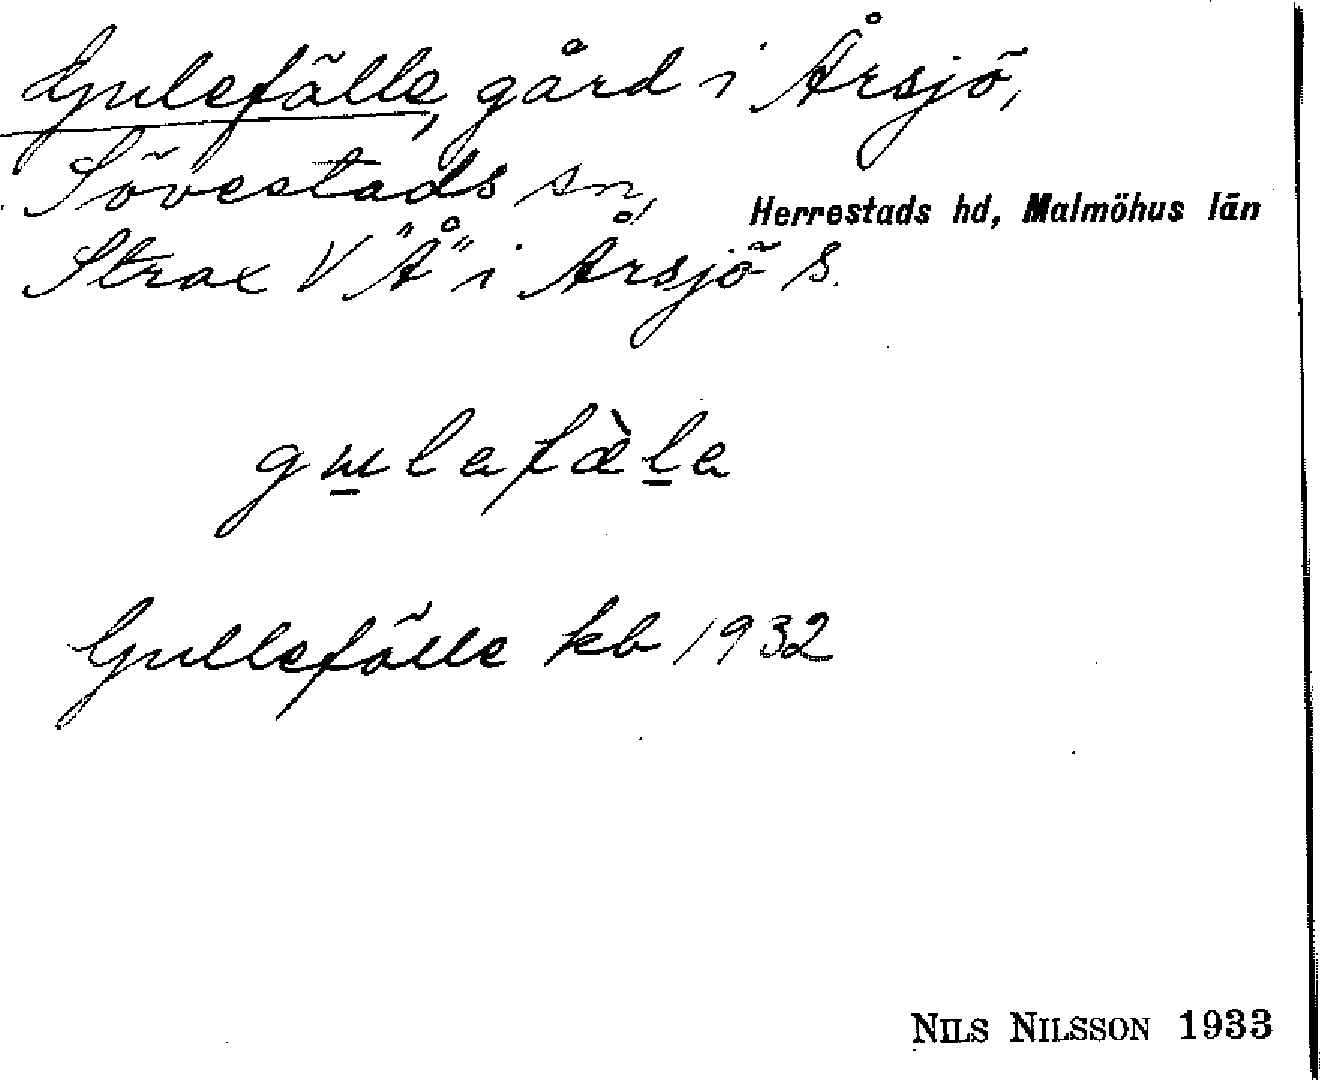 Gulefälle, gård i Årsjö,
Sövestads sn,
Herrestads hd, Malmöhus län
Strax V "Å" i Årsjö S.
gɯlafæ̀la
Gullefälle kb 1932
NILS NILSSON 1933